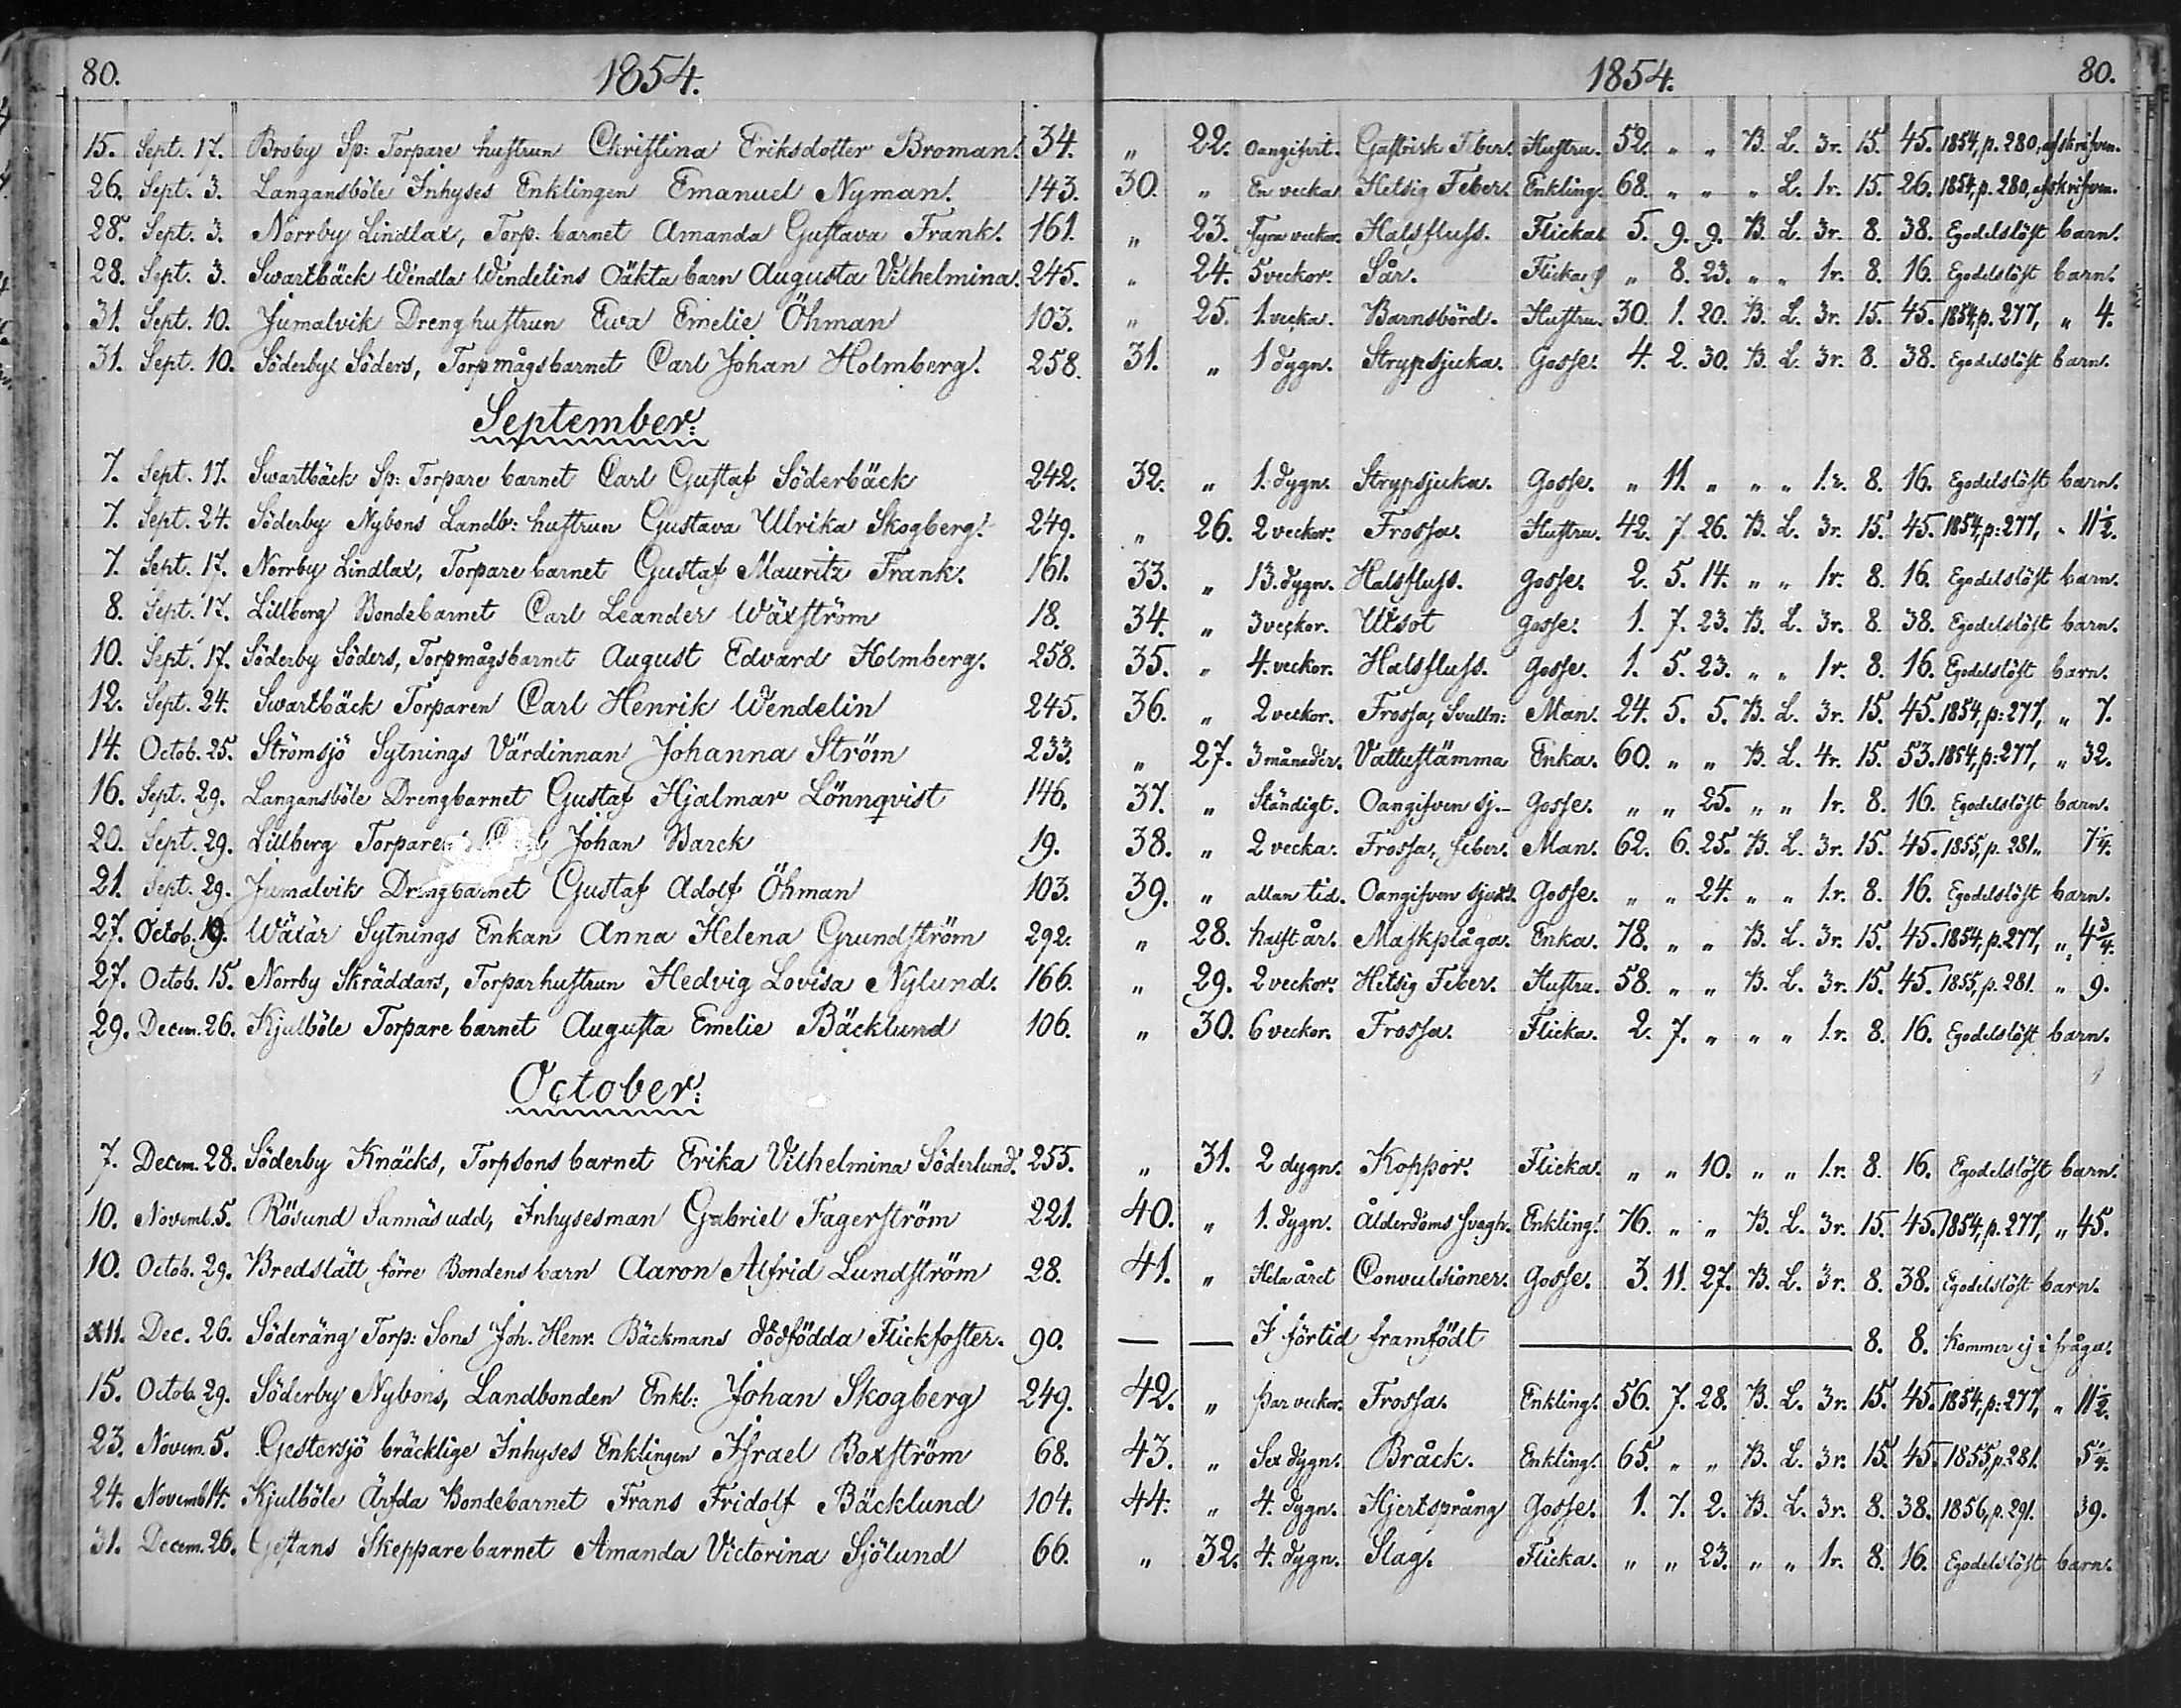 80. 1854. 1854. 80.
15. Sept. 17. Broby Sp: Torpare hustrun Christina Eriksdotter Broman. 34. " 22. Oangifvit. Gastrisk Feber. Hustru. 52. " " B. L. 3r. 15. 45. 1854, p. 280, afskrifven.
26. Sept. 3. Langansböle Inhyses Enklingen Emanuel Nyman. 143. 30. " En vecka Hetsig Feber. Enkling. 68. " " " L. 1r. 15. 26. 1854, p. 280, afskrifven.
28. Sept. 3. Norrby Lindlax, Torp. barnet Amanda Gustava Frank. 161. " 23. Fyra veckor. Halsfluss. Flicka. 5. 9. 9. B. L. 3r. 8. 38. Egodelslöst barn.
28. Sept. 3. Swartbäck Wendla Wendelins Oäkta barn Augusta Vilhelmina. 245. " 24. 5 veckor. Sår. Flicka " 8. 23. " " 1r. 8. 16. Egodelslöst barn.
31. Sept. 10. Jumalvik Dreng hustrun Ewa Emelie Öhman 103. " 25. 1. vecka. Barnsbörd. Hustru. 30. 1. 20. B. L. 3r. 15. 45. 1854, p. 277, " 4.
31. Sept. 10. Söderby Söders, Torpmågsbarnet Carl Johan Holmberg. 258. 31. " 1 dygn. Strypsjuka. Gosse. 4. 2. 30. B. L. 3r. 8. 38. Egodelslöst barn.
September:
7. Sept. 17. Swartbäck Sp: Torpare barnet Carl Gustaf Söderbäck 242. 32. " 1. dygn. Strypsjuka. Gosse. " 11. " " " 1.r. 8. 16. Egodelslöst barn.
7. Sept. 24. Söderby Nybons Landb: hustrun Gustava Ulrika Skogberg. 249. " 26. 2 veckor. Frossa. Hustru. 42. 7. 26. B. L. 3r. 15. 45. 1854, p: 277, " 11½.
7. Sept. 17. Norrby Lindlax, Torpare barnet Gustaf Mauritz Frank. 161. 33. " 13. dygn. Halsfluss. Gosse. 2. 5. 14. " " 1r. 8. 16. Egodelslöst barn.
8. Sept. 17. Lillberg Bondebarnet Carl Leander Wäxström 18. 34. " 3 veckor. Utsot Gosse. 1. 7. 23. B. L. 3r. 8. 38. Egodelslöst barn.
10. Sept. 17. Söderby Söders, Torpmågsbarnet August Edvard Holmberg. 258. 35. " 4. veckor. Halsfluss. Gosse. 1. 5. 23. " " 1r. 8. 16. Egodelslöst barn.
12. Sept. 24. Swartbäck Torparen Carl Henrik Wendelin 245. 36. " 2 veckor. Frossa, Svulln: Man. 24. 5. 5. B. L. 3r. 15. 45. 1854, p: 277, " 7.
14. Octob. 25. Strömsjö Sytnings Värdinnan Johanna Ström 233. " 27. 3 månader. Vattustämma Enka. 60. " " B. L. 4r. 15. 53. 1854, p: 277, " 32.
16. Sept. 29. Langansböle Drengbarnet Gustaf Hjalmar Lönnqvist 146. 37. " Ständigt. Oangifven sj.- Gosse. " " 25. " " 1r. 8. 16. Egodelslöst barn.
20. Sept. 29. Lillberg Torparen Johan Barck 19. 38. " 2 vecka. Frossa, feber. Man. 62. 6. 25. B. L. 3r. 15. 45. 1855, p. 281. " 7¼.
21. Sept. 29. Jumalvik Drengbarnet Gustaf Adolf Öhman 103. 39. " allan tid. Oangifven sjukd. Gosse. " " 24. " " 1.r. 8. 16. Egodelslöst barn.
27. Octob. 19. Wätär Sytnings Enkan Anna Helena Grundström 292. " 28. halft år. Maskplåga. Enka. 78. " " B. L. 3r. 15. 45. 1854, p. 277, " 4¾.
27. Octob. 15. Norrby Skräddars, Torparhustrun Hedvig Lovisa Nylund. 166. " 29. 2 veckor. Hetsig Feber. Hustru. 58. " " B. L. 3r. 15. 45. 1855, p. 281. " 9.
29. Decem. 26. Kjulböle Torpare barnet Augusta Emelie Bäcklund 106. " 30. 6 veckor. Frossa. Flicka. 2. 7. " " " 1.r. 8. 16. Egodelslöst barn.
October:
7. Decem. 28. Söderby Knäcks, Torpsons barnet Erika Vilhelmina Söderlund. 255. " 31. 2 dygn. Koppor. Flicka. " " 10. " " 1.r. 8. 16. Egodelslöst barn.
10. Novemb. 5. Rösund Sannäs udd, Inhysesman Gabriel Fagerström 221. 40. " 1. dygn. Ålderdoms svagh. Enkling. 76. " " B. L. 3r. 15. 45. 1854, p. 277, " 45.
10. Octob. 29. Bredslätt förre Bondens barn Aaron Alfrid Lundström 28. 41. " Hela året Convulsioner. Gosse. 3. 11. 27. B. L. 3r. 8. 38. Egodelslöst barn.
x11. Dec. 26. Söderäng Torp: Sons Joh. Henr. Bäckmans dödfödda Flickfoster. 90. — — I förtid framfödt — 8. 8. Kommer ej i fråga.
15. Octob. 29. Söderby Nybons, Landbonden Enkl: Johan Skogberg 249. 42. " par veckor. Frossa. Enkling. 56. 7. 28. B. L. 3r. 15. 45. 1854, p: 277, " 11½.
23. Novem. 5. Gestersjö bräcklige Inhyses Enklingen Israel Boxström 68. 43. " Sex dygn. Bråck. Enkling. 65. " " B. L. 3r. 15. 45. 1855, p. 281. 5¼.
24. Novemb 14. Kjulböle Ärfda Bondebarnet Frans Fridolf Bäcklund 104. 44. " 4. dygn. Hjertsprång Gosse. 1. 7. 2. B. L. 3r. 8. 38. 1856, p. 291. 39.
31. Decem. 26. Gestans Skeppare barnet Amanda Victorina Sjölund 66. " 32. 4. dygn. Slag. Flicka. " " 23. " " 1r. 8. 16. Egodelslöst barn.